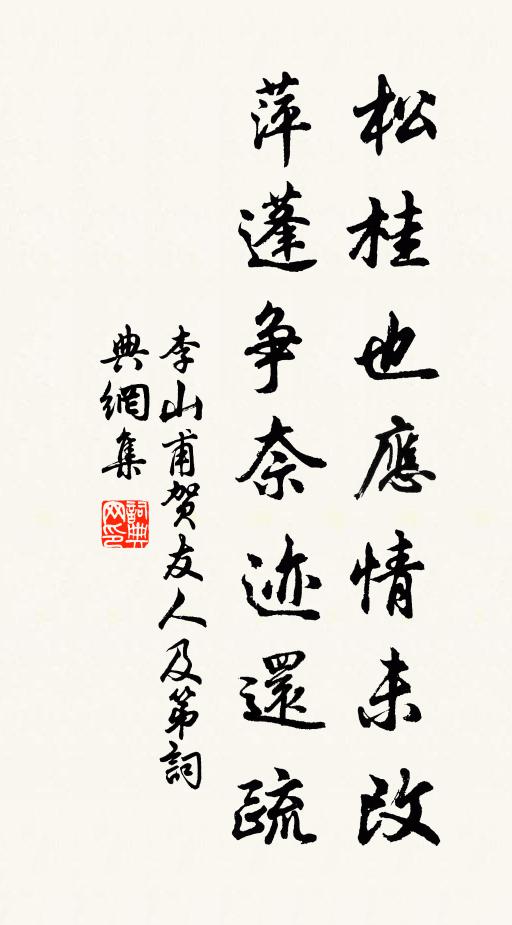 松桂也應情未改
萍蓬争奈迹還疏
李山甫贺友人及第詞
典網集
詞典网印